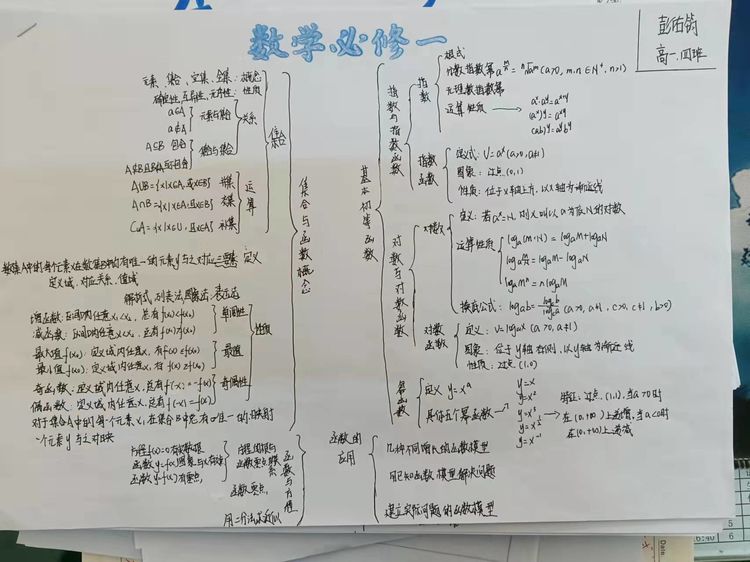 数学必修一
彭佑鸰
高一.四班
元素、集合、空集、全集:概念
确定性,互异性,无序性:性质
a∈A
a∉A
元素与集合
关系
A⊆B 包含
集合与集合
集合
A∪B={x|x∈A,或x∈B} 并集
A∩B={x|x∈A,且x∈B}
CuA={x|x∈U,且x∉A} 补集
运算
集合与函数概念
数集A中的每个元素x在数集B中都有唯一的元素y与之对应
定义
定义域,对应关系,值域
解析式,列表法,图象法:表达法
增函数:区间内任意x₁<x₂,总有f(x₁)<f(x₂)
减函数:区间内任意x₁<x₂,总有f(x₁)>f(x₂)
单调性
最大值f(x₀):定义域内任意x,有f(x)≤f(x₀)
最小值f(x₀):定义域内任意x,有f(x)≥f(x₀)
最值
奇函数:定义域内任意x,总有f(-x)=-f(x)
偶函数:定义域内任意x,总有f(-x)=f(x)
奇偶性
性质
对于集合A中的每一个元素x,在集合B中总有唯一的
一个元素y与之对应
:映射
基本初等函数
指数与指数函数
指数
根式
分数指数幂
(a>0, m.n∈N⁺, n>1)
无理数指数幂
运算性质
aˣ·aʸ=aˣ⁺ʸ
(aˣ)ʸ=aˣʸ
指数函数
定义式:
(a>0,a≠1)
图象:过点(0,1)
性质:位于x轴上方,以x轴为渐近线
对数与对数函数
对数
定义:若aˣ=N,则x叫以a为底N的对数
运算性质
logₐ(M·N)=logₐM+logₐN
logₐM/N=logₐM-logₐN
logₐMⁿ=nlogₐM
换底公式:
(a>0, a≠1, c>0, c≠1, b>0)
对数函数
定义:
(a>0, a≠1)
图象:位于y轴右侧,以y轴为渐近线
性质:过点(1,0)
幂函数
定义 y=xᵃ
具体五个幂函数
y=x
y=x²
y=x³
y=x⁻¹
特征:过点(1,1),当a>0时
在(0,+∞)上递增,当a<0时
在(0,+∞)上递减
函数的应用
函数与方程
方程f(x)=0有实数根
函数y=f(x)图象与x轴有
函数y=f(x)有零点
方程的根与函数零点
关系
函数零点
用二分法求近似
几种不同增长的函数模型
用已知函数模型解决问题
建立实际问题的函数模型
Date
5
6